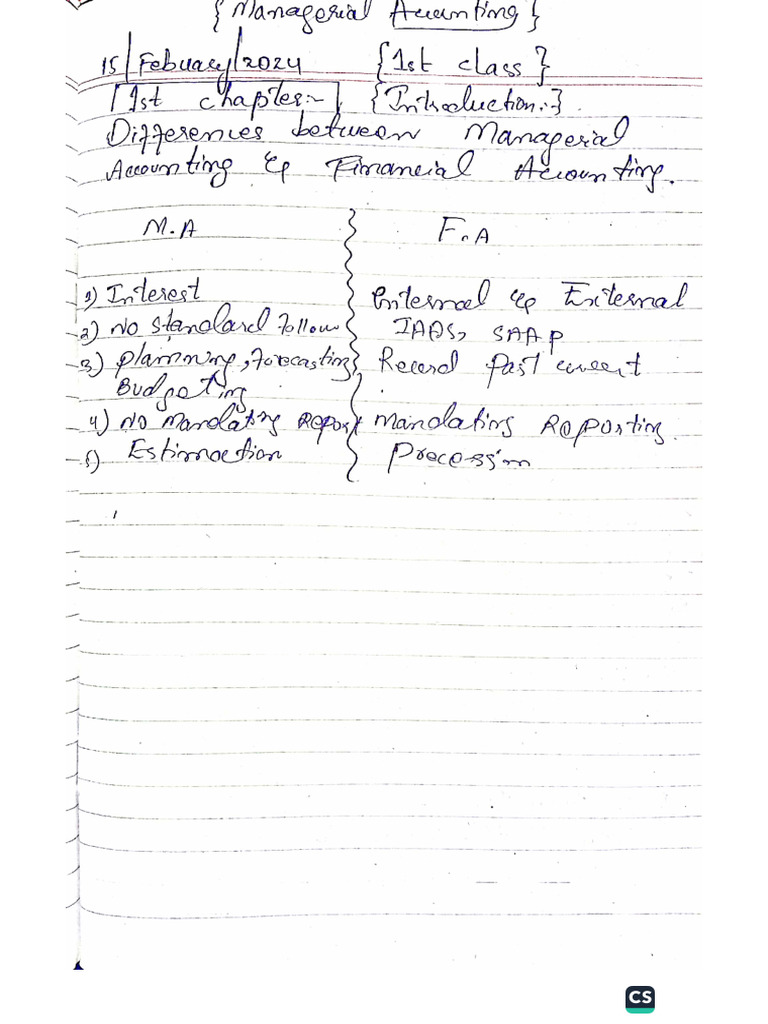 {Managerial Accounting}
15/Febuary/2024 {1st class}
1st chapter:- {Introduction:-}
Differences between Managerial
Accounting & Financial Accounting.
M.A F.A
1) Interest Internal & External
2) No standard follow IAAS, SAAP
3) Planning, Forecasting, Record Past current
Budgeting
4) No Mandating Report Mandating Reporting
5) Estimaction Precession
CS